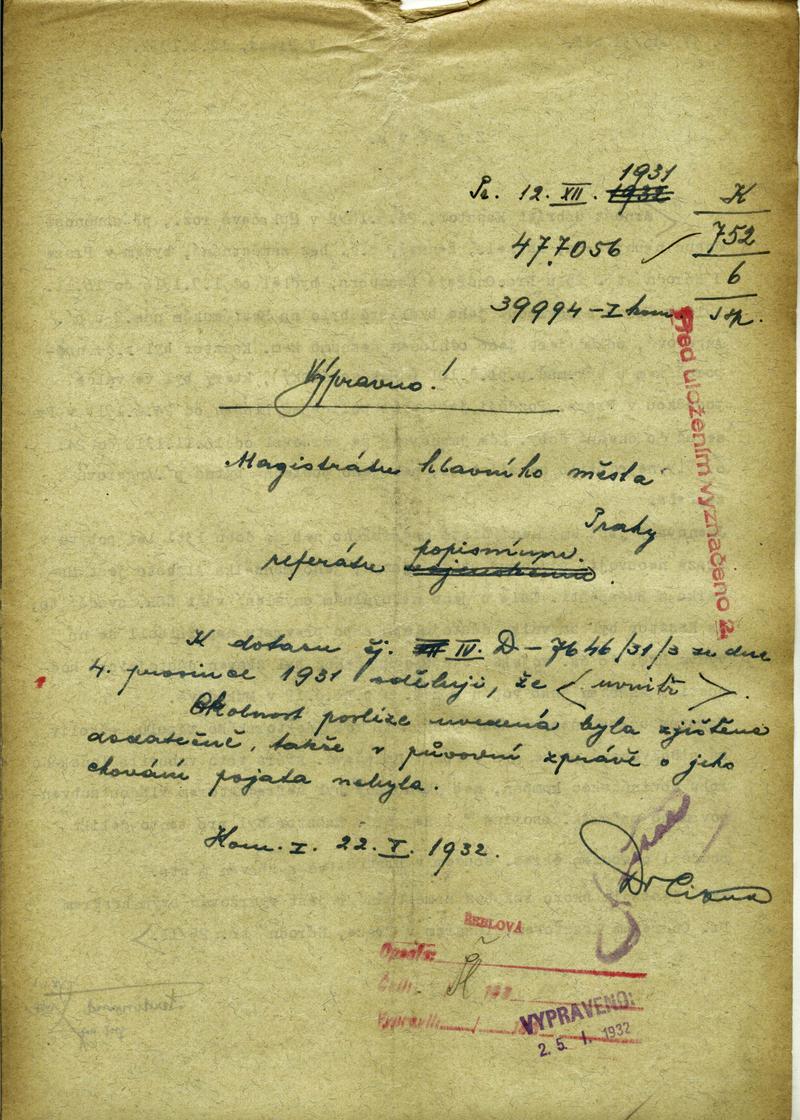 1931
Pr. 12. XII. 1932 K
477056 752
6
39994-I kom. 1 sp.
Před uložením vyznačeno 2.
Výpravno!
Magistrátu hlavního města
Prahy
popisnímu.
referátu
K dotazu čj. IV. D-7646/31/3 ze dne
4. prosince 1931 sděluji, že < uvnitř >.
Okolnost posléze uvedená byla zjištěna
dodatečně, takže v původní zprávě o jeho
chování pojata nebyla.
Kom. I. 22. I. 1932.
Dr
ŘEBLOVÁ
Opsala:
Četli: Ř 193
Vypravili: / 193
VYPRAVENO:
2 5. I. 1932